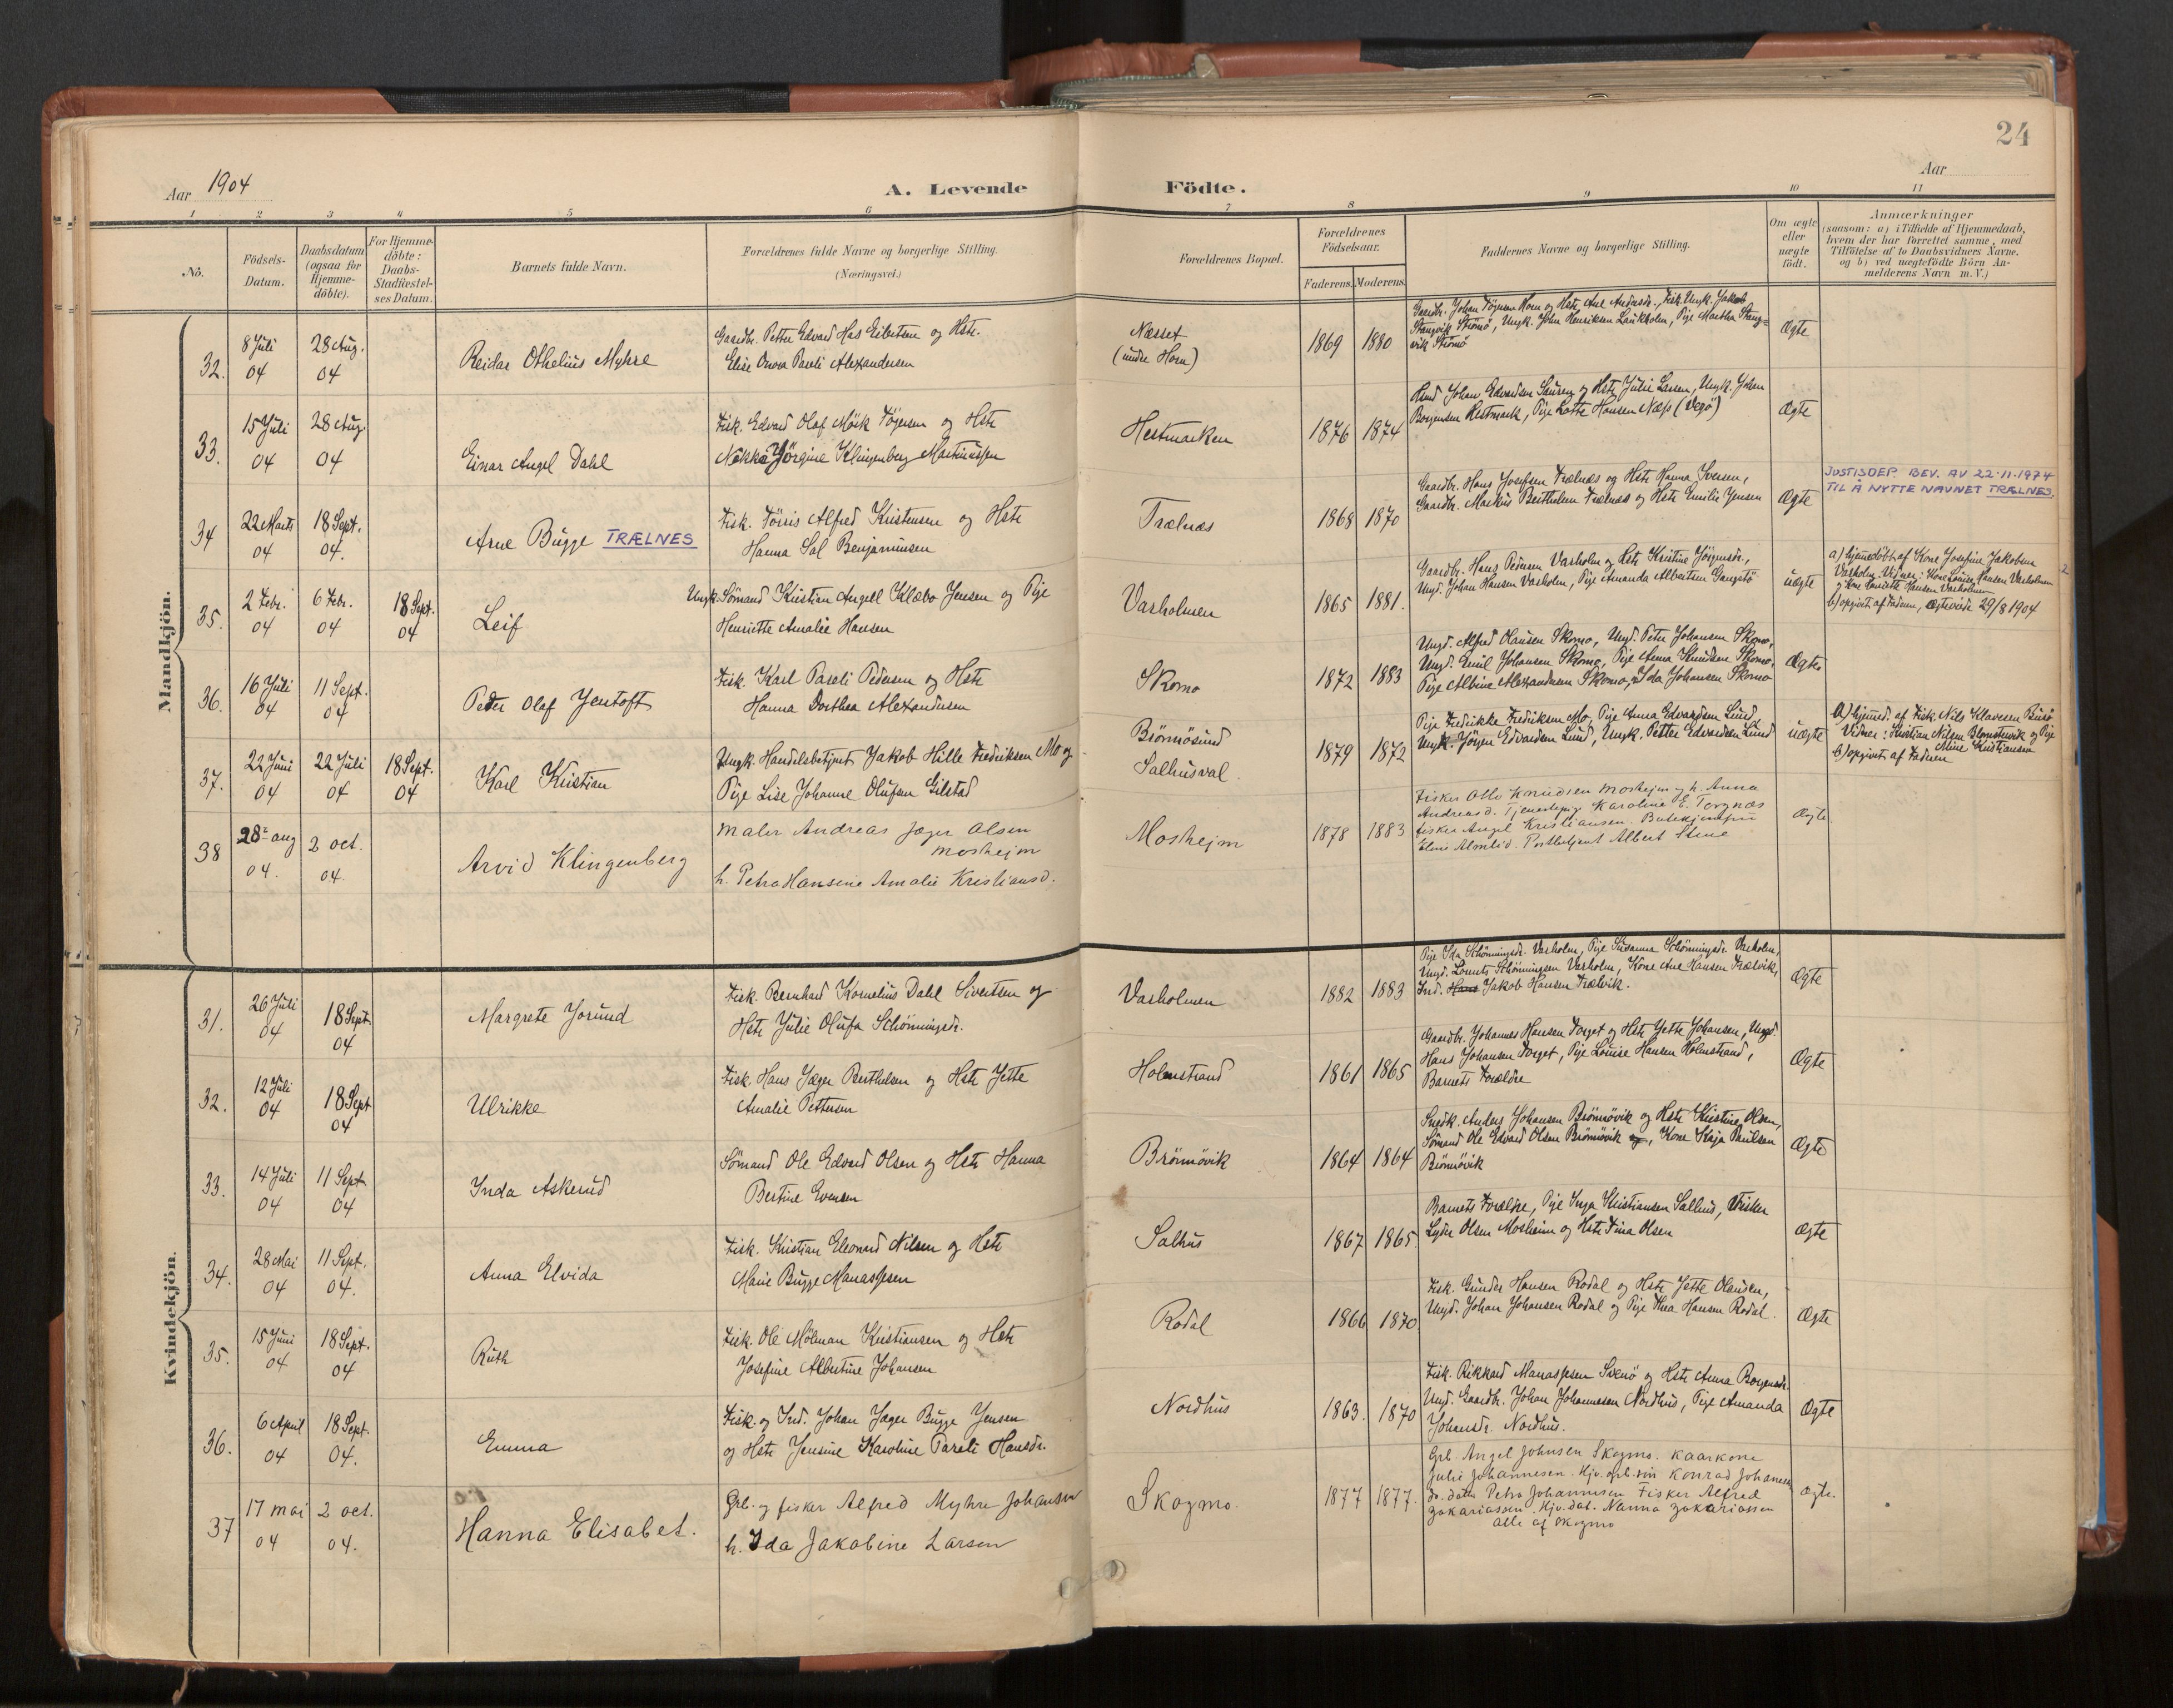 24
Aar 1904
A. Levende Födte.
Aar
1 2 3 4 5 6 7 8 9 10 11
No.
Födsels-
Datum.
Daabsdatum
(ogsaa for
Hjemme-
döbte).
For Hjemme-
döbte:
Daabs-
Stadfæstel-
ses Datum.
Barnets fulde Navn.
Forældrenes fulde Navne og borgerlige Stilling.
(Næringsvei.)
Forældrenes Bopæl.
Forældrenes
Födselsaar.
Faderens. Moderens.
Faddernes Navne og borgerlige Stilling.
Om ægte
eller
uægte
födt.
Anmærkninger
(saasom: a) i Tilfælde af Hjemmedaab,
hvem der har forrettet samme, med
Tilföielse af to Daabsvidners Navne.
og b) ved uægtefödte Börn An-
melderens Navn m. V.)
Mandkjön.
32.
8 Juli
04
28 Aug.
04
Reidar Othelius Myhre
Gaardbr. Petter Edvard Has Eibertsen og Hstr.
Elise Onora Pareli Alexandersen
Næsset
(under Horn)
1869 1880
Gaardbr. Johan Törgersen Horn og Hstr. Ane Andersdr., Fisk. Ungk. Jakob
Stangvik Strömö, Ungk. John Henriksen Laukholm, Pige Martha Stang-
vik Strömö
Ægte
33.
15 Juli
04
28 Aug.
04
Einar Angel Dahl
Fisk. Edvard Olaf Mörk Törgersen og Hstr
Nekka Jörgine Klingenberg Martinussen
Hestmarken
1876 1874
Johan Edvardsen Sauren og Hstr Julie Larsen, Ungk. Johan
Borgersen Hestmark, Pige Lotte Hansen Næss (Vegö)
Ægte
34
22 Marts
04
18 Sept.
04.
Arne Bugge TRÆLNES
Fisk. Törris Alfred Kristensen og Hstr
Hanna Sal Benjaminsen
Trælnæs
1868 1870
Gaardbr. Hans Josefsen Trælnæs og Hstr Hanna Iversen,
Gaardbr. Markus Berthelsen Trælnæs og Hstr Emilie Jensen
Ægte
JUSTISDEP. BEV. AV 22.11.1974
TIL Å NYTTE NAVNET TRÆLNES.
35.
2 Febr.
04
6 Febr.
04
18 Sept.
04
Leif
Ungk. Sömand Kristian Angell Klæbo Jensen og Pige
Henriette Amalie Hansen
Varholmen
1865 1881.
Gaardbr. Hans Pedersen Varholm og Hstr Kristine Jörgensdr.,
Ungd. Johan Hansen Varholm, Pige Amanda Albertsen Gangstö
uægte
a) hjemmedöbt af Kone Josefine Jakobsen
Varholm. Vidner: Kone Louise Hansen Varholmen
og Kone Lauritte Hansen Varholmen
b) opgivet af Faderen, Ægteviede 29/8 1904
36.
16 Juli
04
11 Sept.
04
Peder Olaf Jentoft
Fisk. Karl Pareli Pedersen og Hstr
Hanna Dorthea Alexandersen
Skomo
1872 1883
Ungd. Alfred Olausen Skomo, Ungd. Peter Johansen Skomo,
Ungd. Emil Johansen Skomo, Pige Anna Knudsen Skomo,
Pige Albine Alexandersen Skomo, Ida Johansen Skomo
Ægte
37.
22 Juni
04
22 Juli
04
18 Sept.
04
Karl Kristian
Ungk. Handelsbetjent Jakob Hille Fredriksen Mo og
Pige Lise Johanne Olufsen Gilstad
Brönnösund
Salhusval.
1879 1872
Pige Fredrikke Fredriksen Mo, Pige Anna Edvardsen Lund,
Ungk. Jörgen Edvardsen Lund, Ungk. Petter Edvardsen Lund
uægte
a) hjemmed. af Fisk. Nils Klavesen Burö
Vidner: Kristian Nilsen Blomstervik og Pige
Aline Kristiansen
b) opgivet af Faderen
38
28 aug
04.
2 oct.
04.
Arvid Klingenberg
Maler Andreas Jæger Olsen
Mosheim
h. Petra Hansine Amalie Kristiansd.
Mosheim
1878 1883
Fisker Otto Knudsen Mosheim og h. Anna
Andreasd. Tjenestepig Karoline E. Torgnæs
fisker Angel Kristiansen.
Eline Almlid. Postbetjent Albert Stene
Ægte
Kvindekjön.
31.
26 Juli
04
18 Sept.
04
Margrete Jorund
Fisk. Bernhard Kornelius Dahl Sivertsen og
Hstr Julie Olufa Schönningsdr.
Varholmen
1882 1883
Pige Ida Schönningsdr. Varholm, Pige Susanna Schönningsdr. Varholm,
Ungd. Lorents Schönningsen Varholm, Kone Ane Hansen Trælvik,
Ind. Hans Jakob Hansen Trælvik.
Ægte
32.
12 Juli
04
18 Sept
04
Ulrikke
Fisk. Hans Jæger Berthelsen og Hstr Jette
Amalie Pettersen
Holmstrand
1861 1865
Gaardbr. Johannes Hansen Torget og Hstr Jette Johansen, Ungd.
Hans Johansen Torget, Pige Louise Hansen Holmstrand,
Barnets Forældre
Ægte
33.
14 Juli
04
11 Sept.
04
Inda Askerud
Sömand Ole Edvard Olsen og Hstr Hanna
Bertine Evensen
Brönnövik
1864 1864
Snedk. Anders Johansen Brönnövik og Hstr Kristine Olsen,
Sömand Ole Edvard Olsen Brönnövik og, Kone Kaja Paulsen
Brönnövik
Ægte
34.
28 Mai
04
11 Sept.
04.
Anna Elvida
Fisk. Kristian Eleonard Nilsen og Hstr
Marie Bugge Manassesen
Salhus
1867 1865.
Barnets Forældre, Pige Inga Kristiansen Salhus, Fisker
Lyder Olsen Mosheim og Hstr Fina Olsen
Ægte
35.
15 Juni
04
18 Sept.
04
Ruth
Fisk. Ole Mölman Kristiansen og Hstr
Josefine Albertine Johansen
Rodal
1866 1870
Fisk. Gunder Hansen Rodal og Hstr Jette Olausen,
Ungd. Johan Johansen Rodal og Pige Thea Hansen Rodal.
Ægte
36.
6 April
04
18 Sept.
04.
Emma
Fisk. og Ind. Johan Jæger Bugge Jensen
og Hstr Jensine Karoline Pareli Hansdr.
Nordhus
1863. 1870
Fisk. Rikkard Manassesen Sænö og Hstr Anna Borgersdr.
Ungd. Gaardbr. Johan Johannesen Nordhus, Pige Amanda
Johansdr. Nordhus.
Ægte
37
17 mai
04
2 oct.
04.
Hanna Elisabet.
Grb. og fisker Alfred Myhre Johansen
h. Ida Jakobine Larsen
Skogmo.
1877 1877.
Grb. Angel Johnsen Skogmo. Kaarkone
Julie Johannesen. Hjv. grb. søn Konrad Johannesen
do. datter Petra Johannesen Fisker Alfred
Zakariassen. Hjv. dat. Nanna Zakariassen
Alle af Skogmo
ægte.